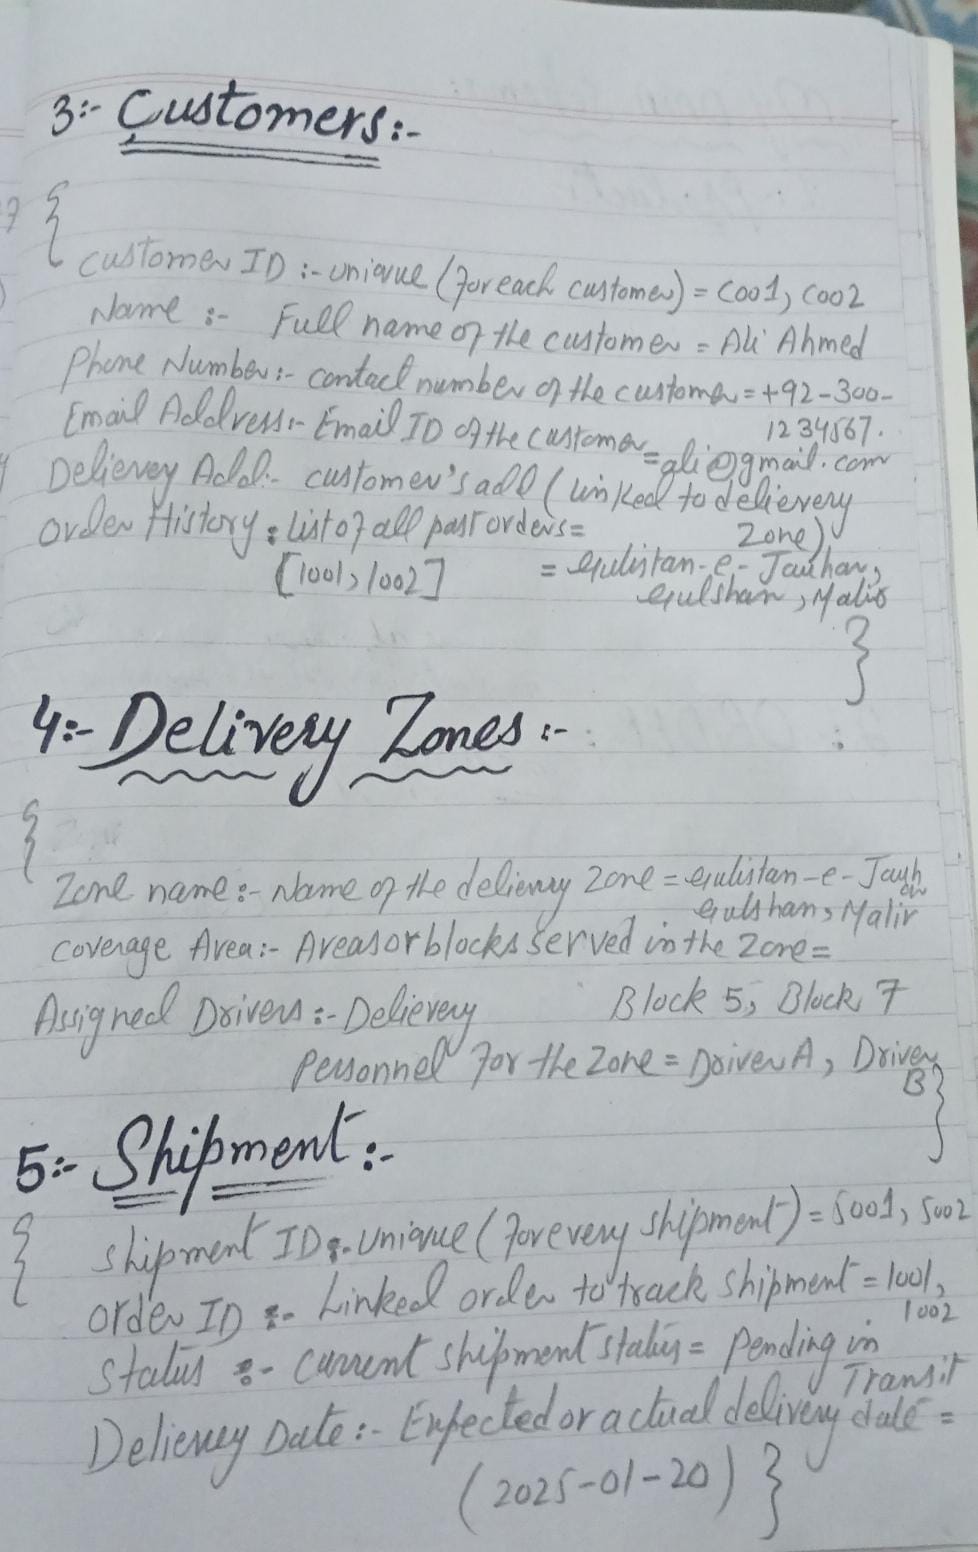 3:- Customers:-
{
Customer ID :- unique (for each customer) = C001, C002
Name :- Full name of the customer = Ali Ahmed
Phone Number:- contact number of the customer = +92-300-
1234567.
Email Address:- Email ID of the customer = ali@gmail.com
Delievey Add:- customer's add (linked to delievery
Zone)
Order History: List of all past orders =
[1001, 1002]
= Gulistan-e-Jauhar,
Gulshan, Malir
}
4:- Delivery Zones :-
{
Zone name :- Name of the delievery zone = Gulistan-e-Jauhar
Gulshan, Malir
Coverage Area:- Areas or blocks served in the Zone =
Block 5, Block 7
Assigned Drivers :- Delievery
Personnel for the Zone = Driver A, Driver
B }
5:- Shipment :-
{
Shipment ID :- Unique (for every shipment) = S001, S002
order ID :- Linked order to track shipment = 1001,
1002
Status :- current shipment status = Pending in
Transit
Delievey Date :- Expected or actual delivery date =
(2025-01-20) }